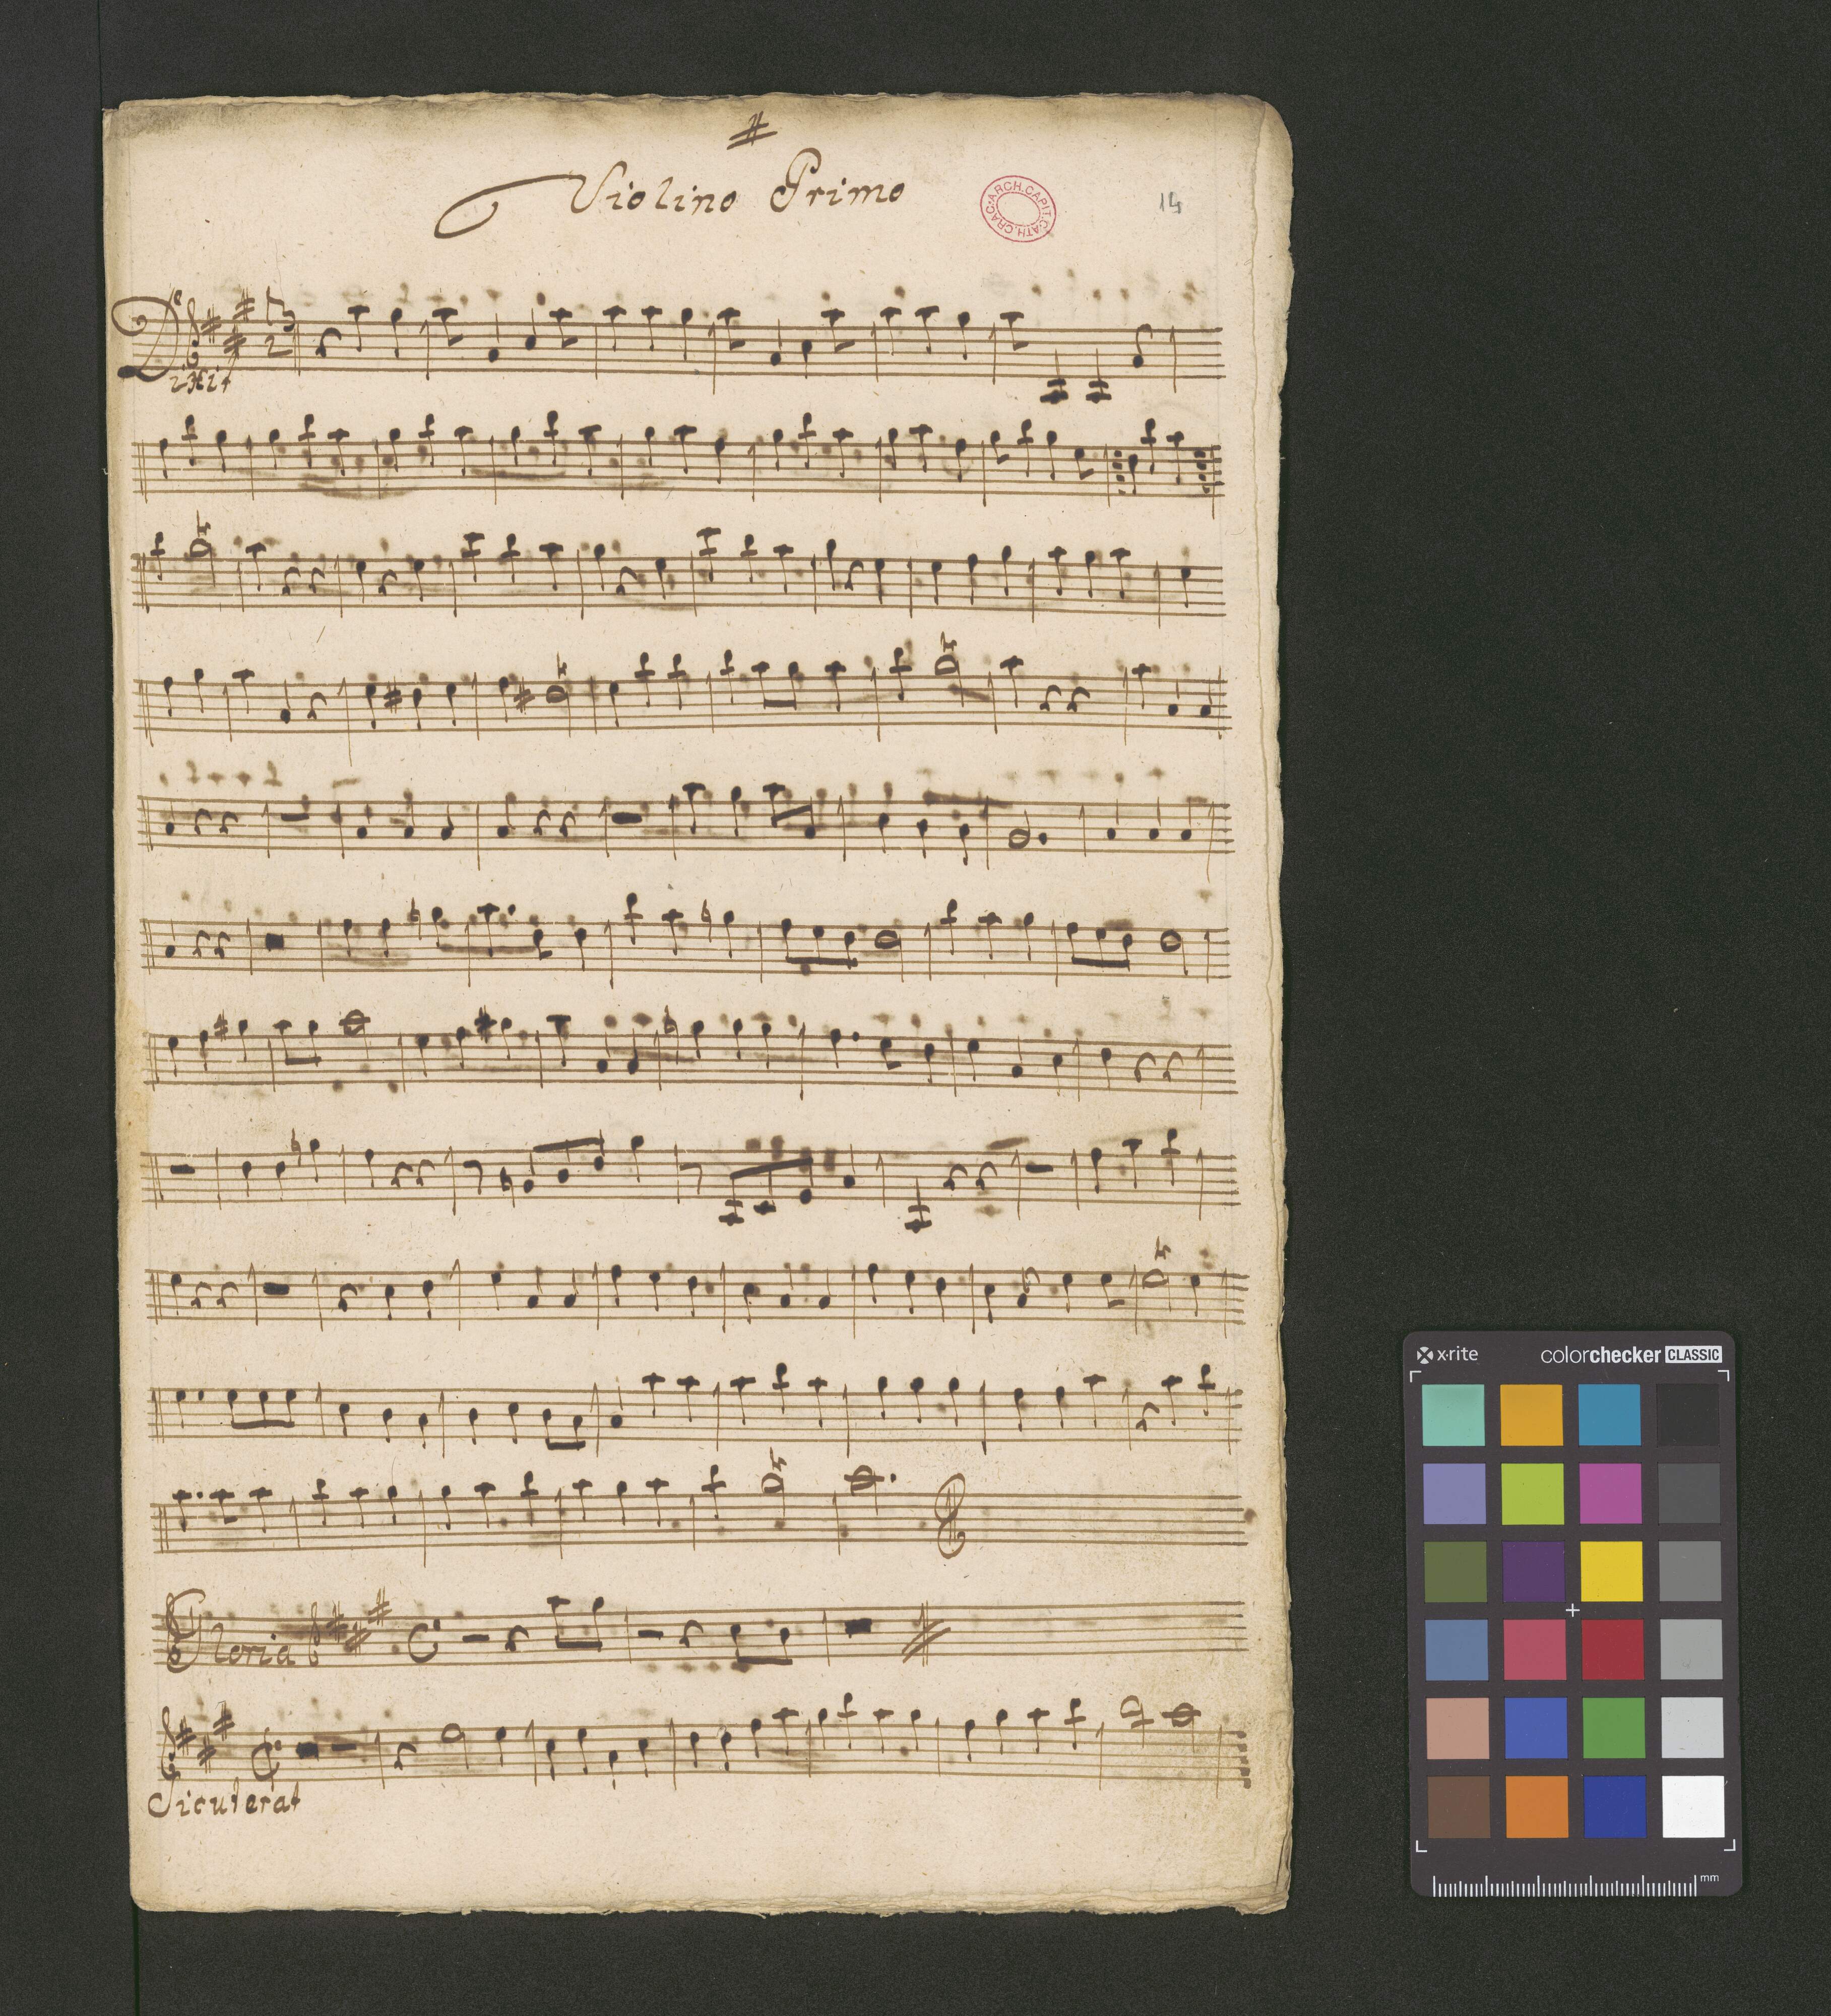 Violino Primo
ARCH.CAPIT.CATH.CRAC.
14
Dixit
3
2
Gloria
Sicut erat
x·rite
colorchecker CLASSIC
mm